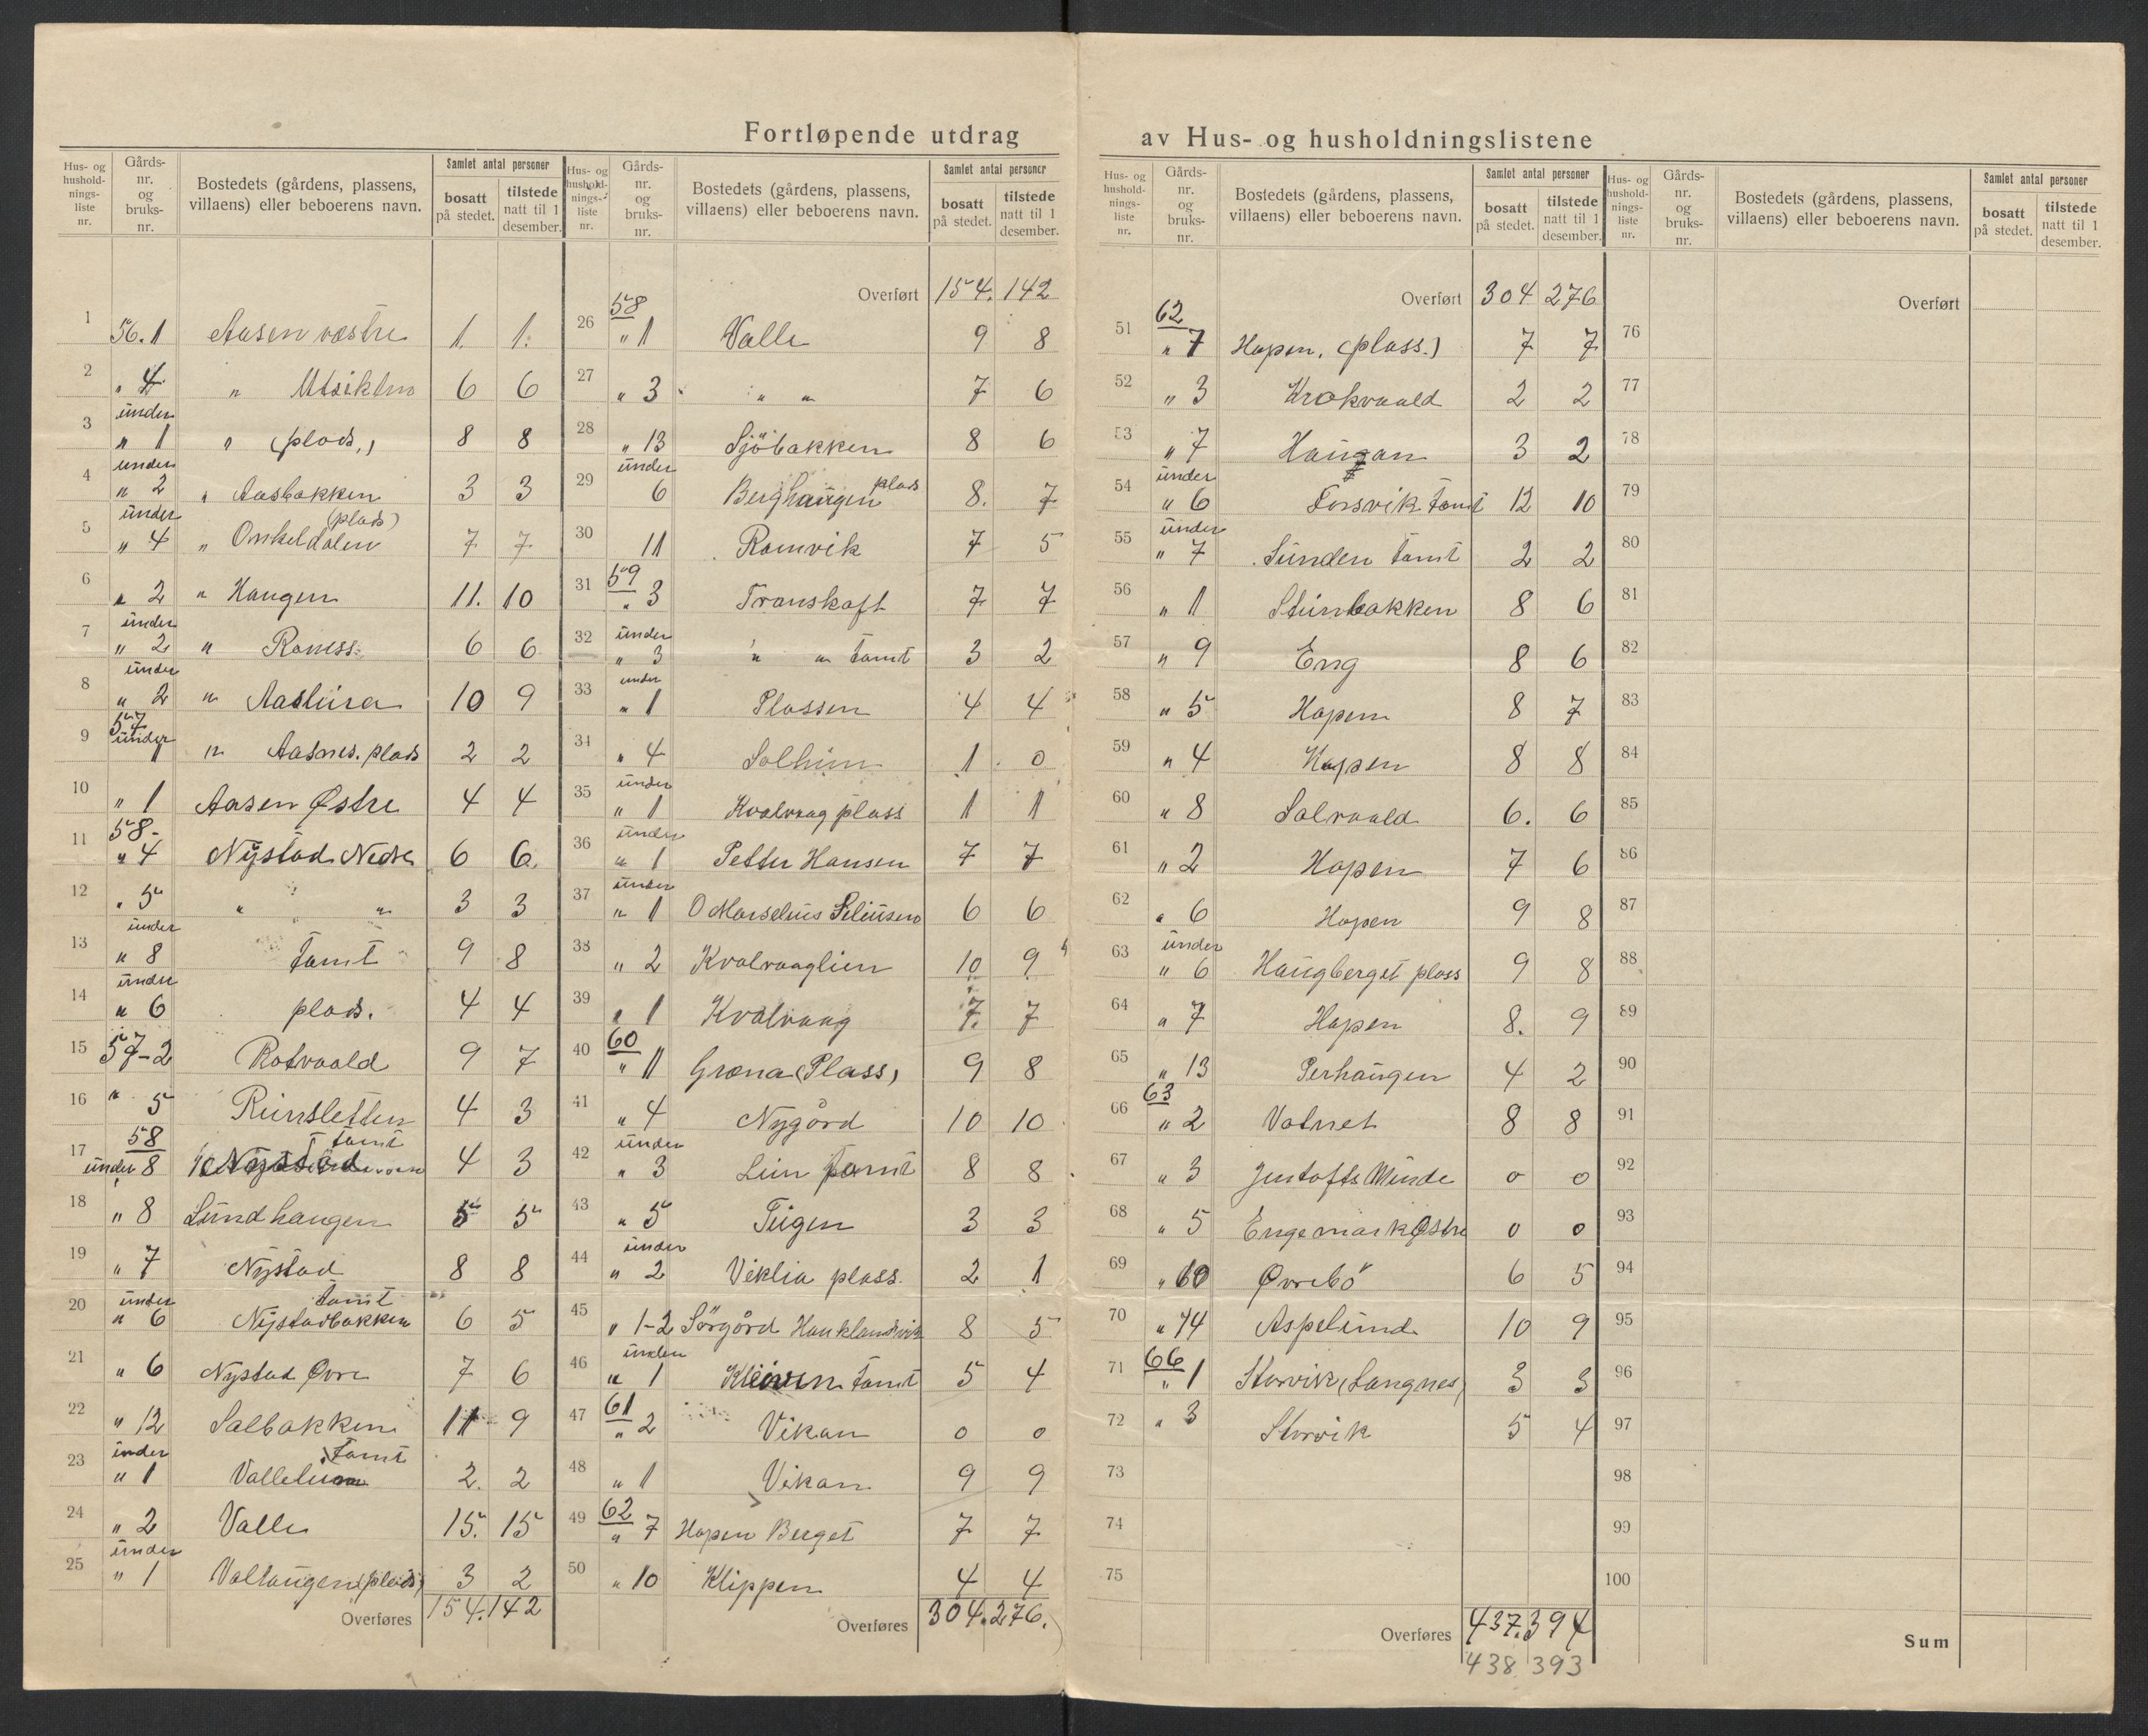 Fortløpende utdrag av Hus- og husholdningslistene
Hus- og hushold-nings-liste nr. Gårds-nr. og bruks-nr. Bostedets (gårdens, plassens, villaens) eller beboerens navn. Samlet antal personer bosatt på stedet. tilstede natt til 1 desember.
1 56.1 Aasen vestre 1. 1.
2 " 4 " Utsikten 6 6
3 under " 1 " (plads,) 8 8
4 under " 2 " Aasbakken 3 3
5 under " 4 " Onkeldalen (plads) 7 7
6 " 2 " Haugen 11. 10
7 under " 2 " 6 6
8 under " 2 " 10 9
9 57 under 1 " Aasnes. plads 2 2
10 " 1 Aasen Østre 4 4
11 58- " 4 Nÿstad Nedre 6 6.
12 " 5 " " 3 3
13 under " 8 tomt 9 8
14 under " 6 plads. 4 4
15 57-2 Rotvaald 9 7
16 " 5 4 3
17 58 under 8 Nÿstad tomt 4 3
18 " 8 Lundhaugen 5 5
19 " 7 Nÿstad 8 8
20 under " 6 Nÿstadbakken tomt 6 5
21 " 6 Nystad Øvre 7 6
22 " 12 Solbakken 11 9
23 under " 1 tomt 2. 2
24 " 2 Valle 15. 15
25 under " 1 Valhaugen (plads) 3 2
Overføres 154. 142
Hus- og hushold-nings-liste nr. Gårds-nr. og bruks-nr. Bostedets (gårdens, plassens, villaens) eller beboerens navn. Samlet antal personer bosatt på stedet. tilstede natt til 1 desember.
Overført 154. 142
26 58 " 1 Valle 9 8
27 " 3 " " 7 6
28 " 13 Sjöbakken 8 6
29 under 6 Berghaugen plads 8. 7
30 11 Ramvik 7 5
31 59 " 3 Transkaft 7 7
32 under " 3 " " tomt 3 2
33 under " 1 Plassen 4 4
34 " 4 Solheim 1 0
35 under " 1 Kvalvaag plass 1 1
36 under " 1 Petter Hansen 7 7
37 under " 1 O Marselius 6 6
38 " 2 Kvalvaaglien 10 9
39 " 1 Kvalvaag 7. 7
40 60 " 11 Grøna (Plass) 9 8
41 " 4 Nygård 10 10
42 under " 3 Lien tomt 8 8
43 " 5 Teigen 3 3
44 under " 2 Veklia plass. 2 1
45 " 1-2 Sørgård Hauklandvik 8 5
46 under " 1 Kleiven tomt 5 4
47 61 " 2 Vikan 0 0
48 " 1 Vikan 9 9
49 62 " 7 Hopen Berget 7 7
50 " 10 Klippen 4 4
Overføres 304. 276.
Hus- og hushold-nings-liste nr. Gårds-nr. og bruks-nr. Bostedets (gårdens, plassens, villaens) eller beboerens navn. Samlet antal personer bosatt på stedet. tilstede natt til 1 desember.
Overført 304 276
51 62 " 7 Hopen, (plass.) 7 7
52 " 3 Krokvaald 2 2
53 " 7 Haugan 3 2
54 under " 6 Forsvik tomt 12 10
55 under " 7 Sunden tomt 2 2
56 " 1 Steinbakken 8 6
57 " 9 Eng 8 6
58 " 5 Hopen 8 7
59 " 4 Hopen 8 8
60 " 8 Solvaald 6. 6
61 " 2 Hopen 7 6
62 " 6 Hopen 9 8
63 under " 6 Haugberget plass 9 8
64 " 7 Hopen 8. 9
65 " 13 Perhaugen 4 2
66 63 " 2 Vatnet 8 8
67 " 3 Gustafts Minde 0 0
68 " 5 Engemark Østre 0 0
69 " 60 Øvrebö 6 5
70 " 74 Aspelund 10 9
71 66 " 1 Storvik (Langnes) 3 3
72 " 3 Storvik 5 4
73
74
75
Overføres 437. 394
438 393
Hus- og hushold-nings-liste nr. Gårds-nr. og bruks-nr. Bostedets (gårdens, plassens, villaens) eller beboerens navn. Samlet antal personer bosatt på stedet. tilstede natt til 1 desember.
Overført
76
77
78
79
80
81
82
83
84
85
86
87
88
89
90
91
92
93
94
95
96
97
98
99
100
Sum